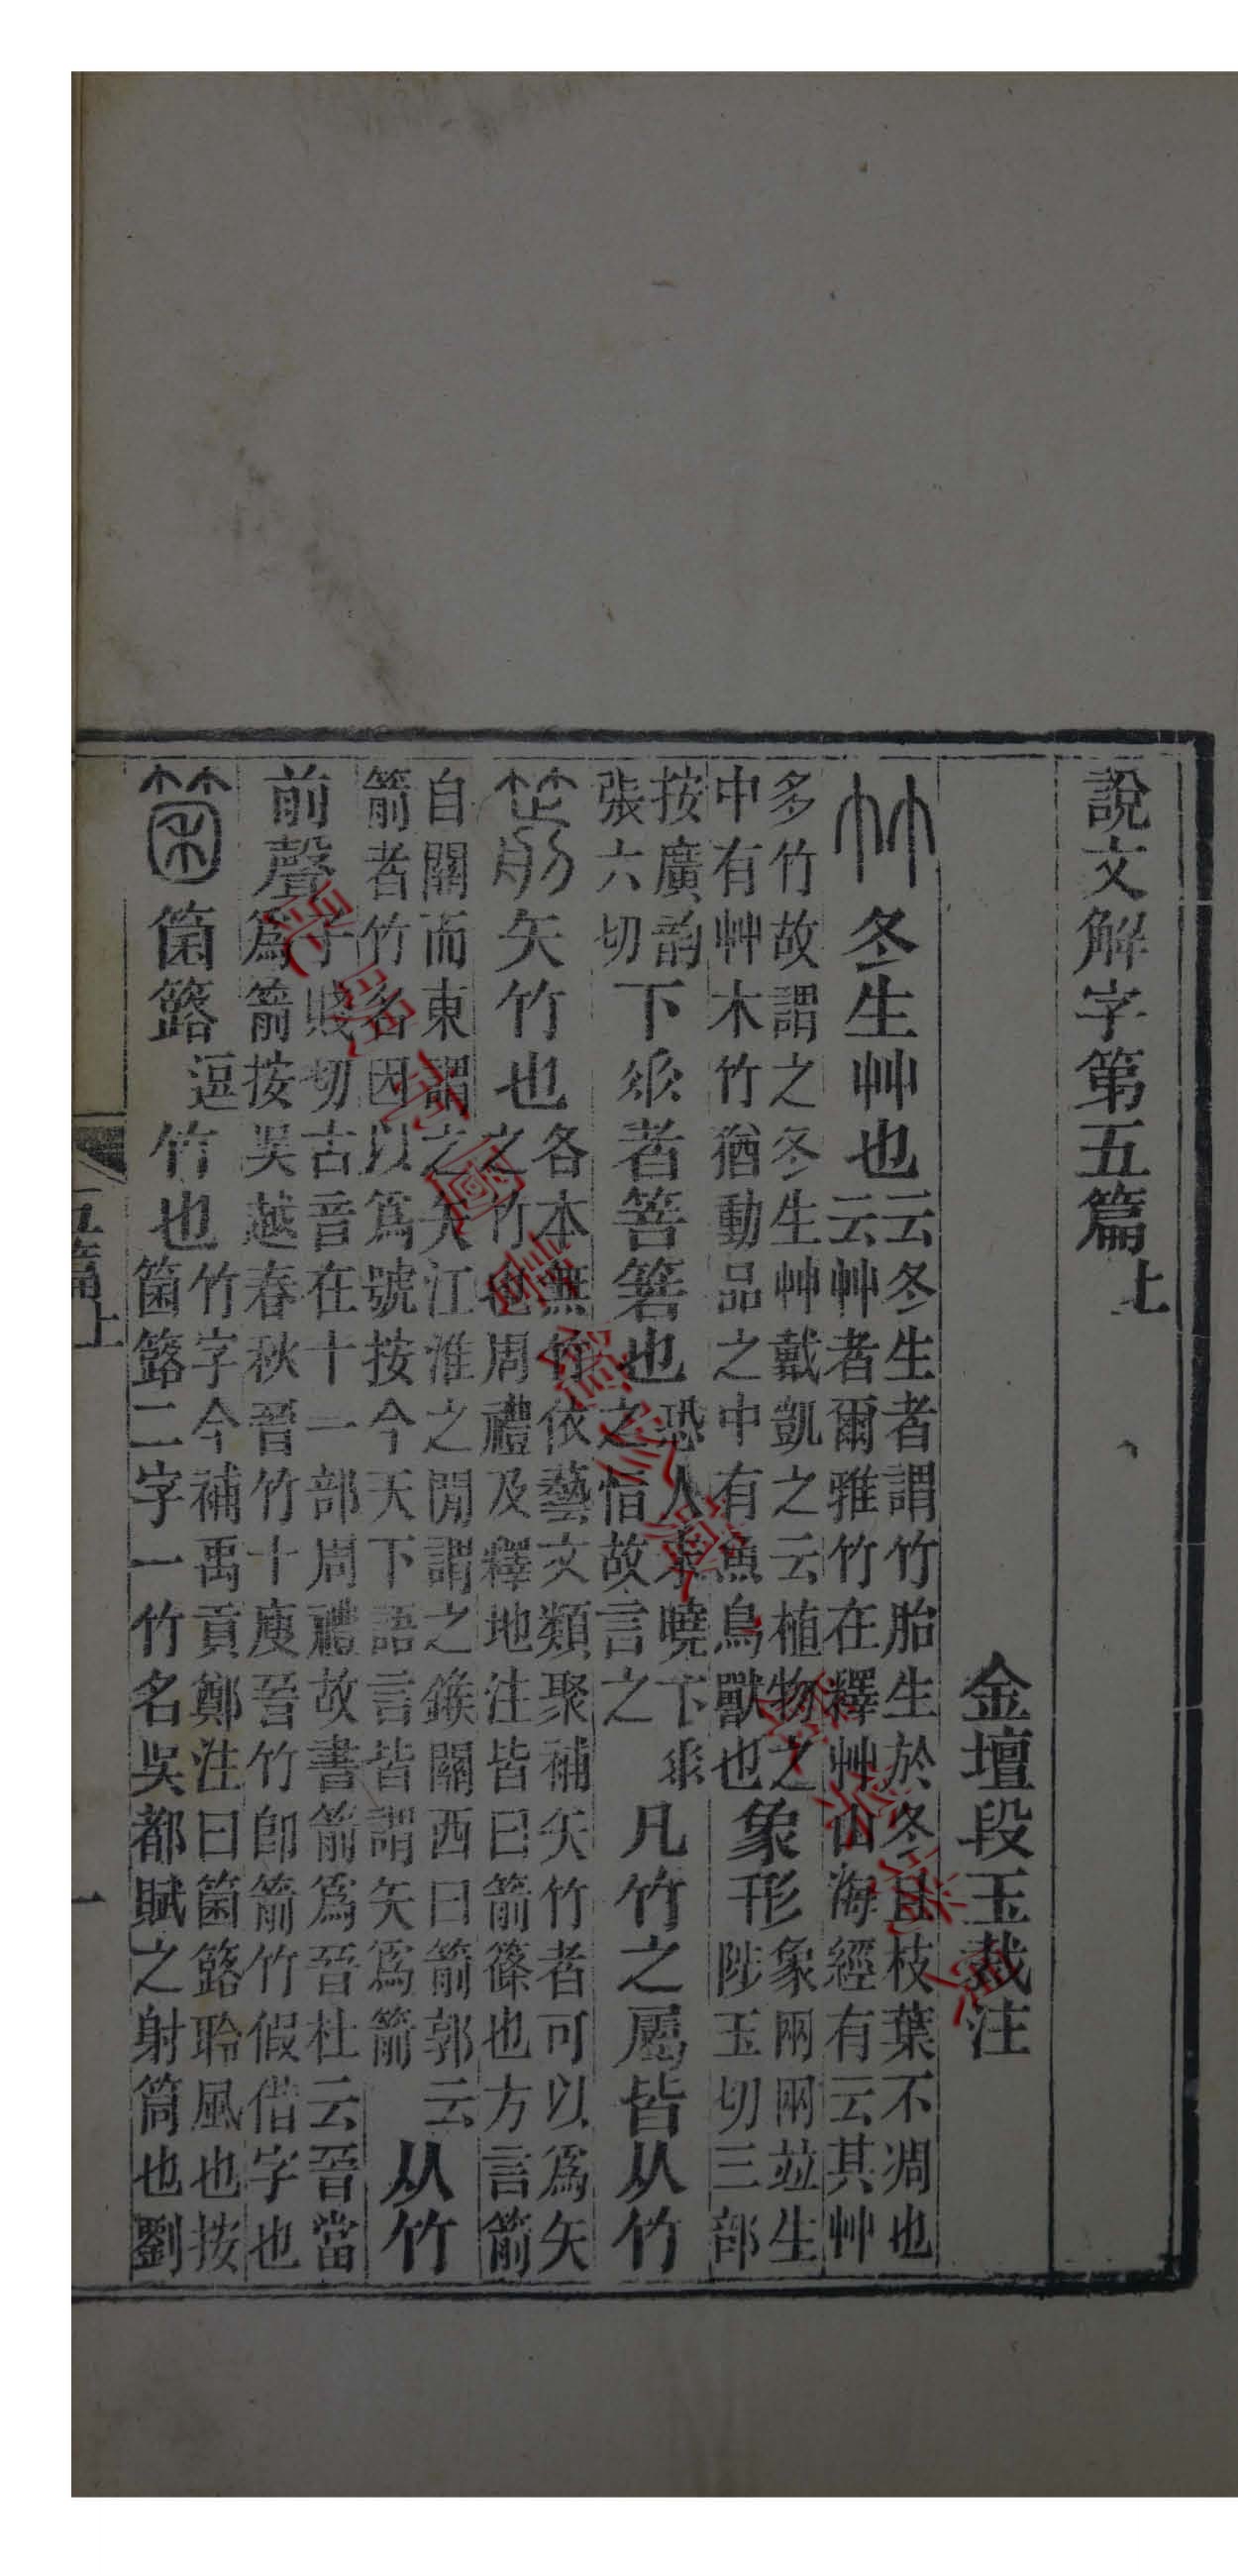 說文解字第五篇上
金壇段玉裁注
竹冬生艸也云冬生者謂竹胎生於冬且枝葉不凋也云艸者爾雅竹在釋艸山海經有云其艸
多竹故謂之冬生艸戴凱之云植物之中有艸木竹猶動品之中有魚鳥獸也象形象兩兩竝生陟玉切三部
按廣韵張六切下𠂹者箁箬也恐人未曉下𠂹之恉故言之凡竹之屬皆从竹
箭矢竹也各本無竹依藝文類聚補矢竹者可以爲矢之竹也周禮及釋地注皆曰箭篠也方言箭
自關而東謂之矢江淮之閒謂之鍭關西曰箭郭云箭者竹名因以爲號按今天下語言皆謂矢爲箭从竹
前聲子賤切古音在十一部周禮故書箭爲晉杜云晉當爲箭按吳越春秋晉竹十廋晉竹卽箭竹假借字也
箘箘簬逗竹也竹字今補禹貢鄭注曰箘簬聆風也按箘簬二字一竹名吳都賦之射筒也劉
五篇上
一